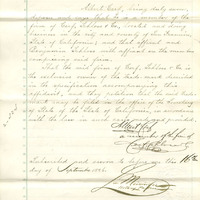 Albert Cerf, being duly sworn,
deposes and says that he is a member of the
firm of Cerf, Schloss & Co. and doing
business in the city and county of San Francisco,
State of California; and that affiant and
Benjamin Schloss with affiant are the members
composing said firm.
That the said firm of Cerf, Schloss & Co. is
the exclusive owner of the trade mark described
in the accompanying
affidavit, and they that the said trade
mark may be filed in the office of the Secretary
of State of the State of California, in accordance
with the law in such cases made and provided.
Albert Cerf
a member of the firm of
Cerf, Schloss & Co.
Subscribed and sworn to before me this 16th
day of September 1886.